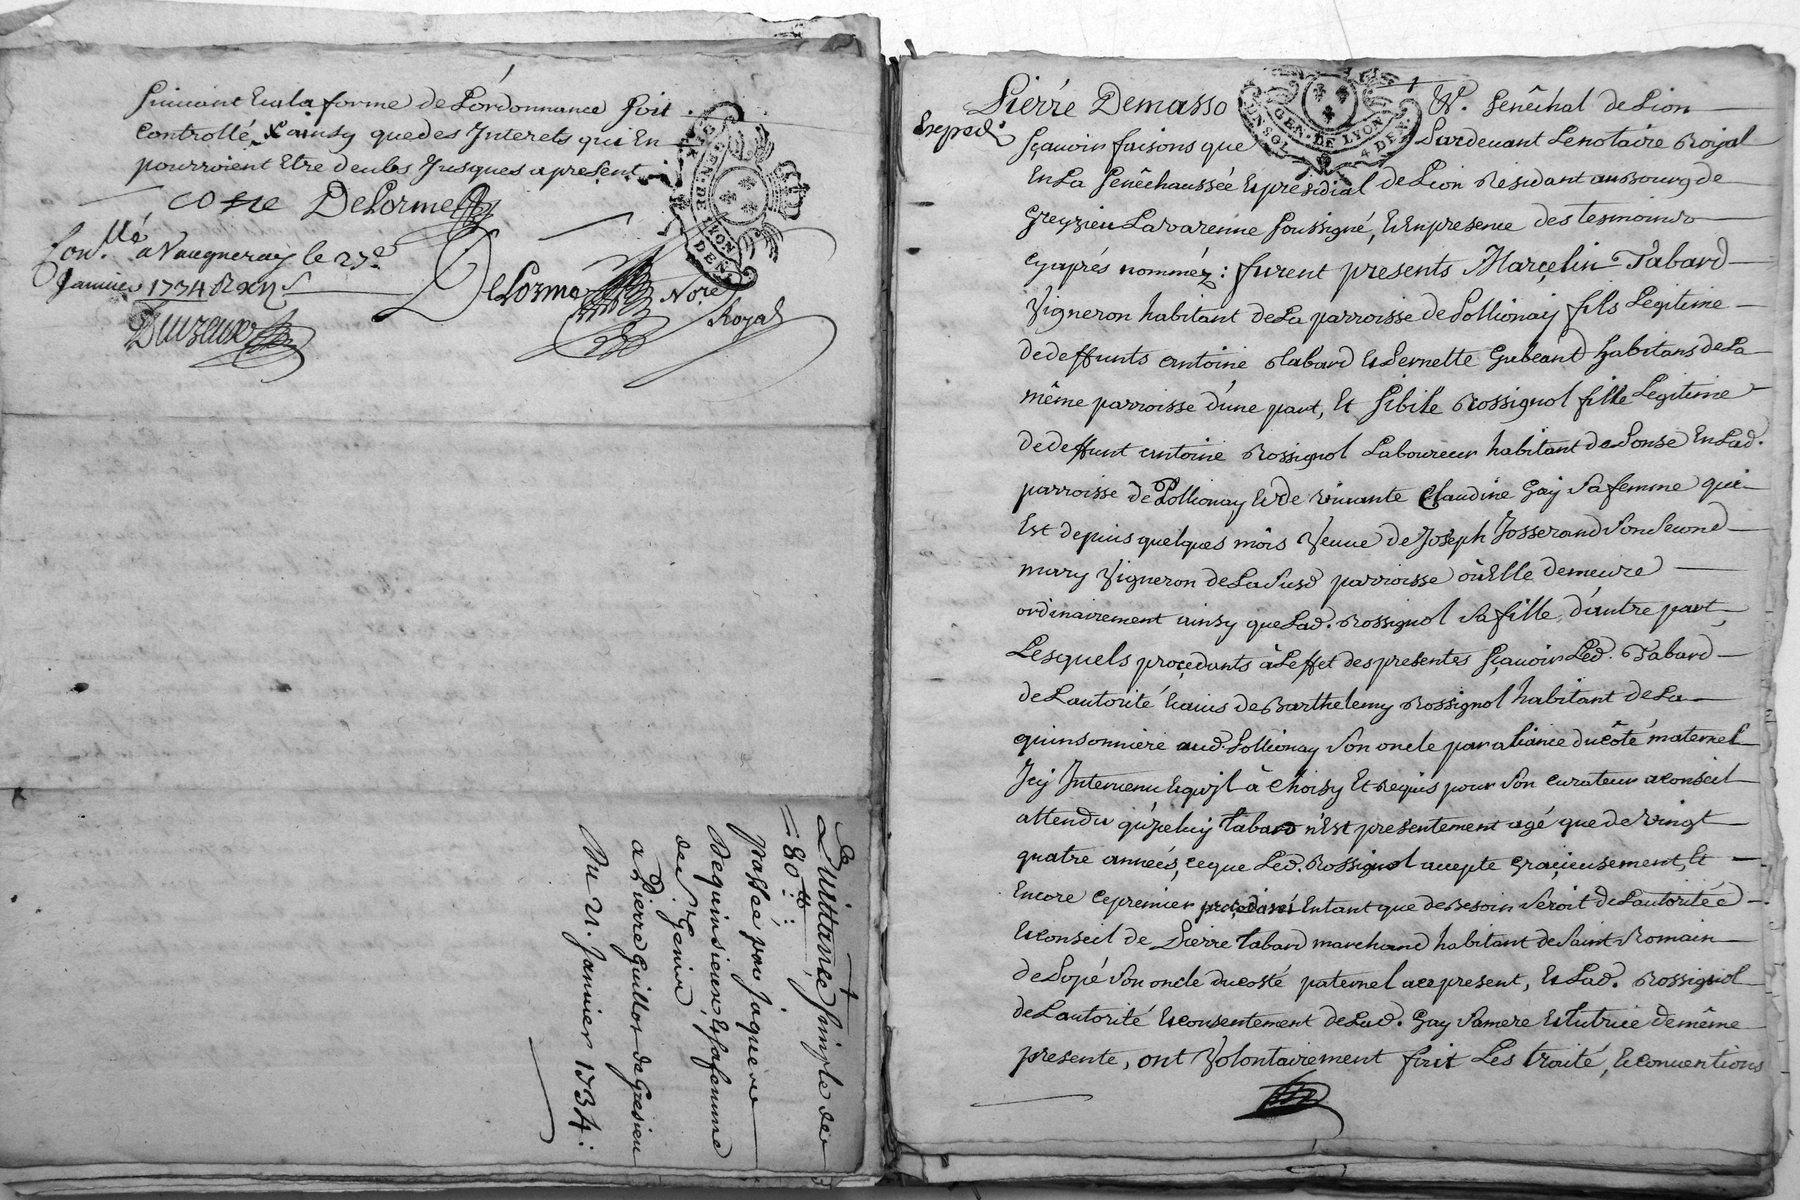 suivant Et a la forme de L'ordonnance soit
Controllé, & ainsy que des Interets qui En
pourroient Etre deubs Jusques apresent
coste DeLorme
Con.llé a Vaugneray le 27e
Janvier 1734 R
DeLorme No.re
Royal
GEN. DE LYON
DEN.
Quittance simple de
180 tt :
passée par Jaques
Dequinsieux, Et sa femme
de St. Genis
a Pierre Guillot de Gresieu
Du 21. Janvier 1734 :
Pierre Demasso
GEN. DE LYON
4 DEN.
Sr. Senêchal de Lion
Exped.
sçavoir faisons que Pardevant Le notaire Royal
En La Senêchaussée Et presidial de Lion Residant au Bourg de
Greyzieu Lavarenne soussigné, Et En presence des tesmoins
cy aprés nommêz : furent presents Marçelin Tabard
Vigneron habitant de La parroisse de Pollionay fils Legitime
de deffunts antoine Tabard Et Pernette Gubeand habitans de La
même parroisse d'une part, Et Sibile Rossignol fille Legitime
de deffunt antoine Rossignol Laboureur habitant de Ponse En Lad.
parroisse de Pollionay Et de vivante Claudine Gay sa femme qui
Est depuis quelques môis Veuve de Joseph Josserand son second
mary Vigneron de La susd parroisse où Elle demeure
ordinairement ainsy que Lad. Rossignol sa fille, d'autre part,
Lesquels proçedants à L'effet des presentes sçavoir Led. Tabard
de L'autorité Et avis de Barthelemy Rossignol habitant de La
quinsonniere aud. Pollionay son oncle par aliance du côté maternel
Jcy Intervenu Et qu'jl à choisy Et Requis pour son curateur a conseil
attendu qu'jceluy tabard n'Est presentement agé que de vingt
quatre années, ce que Led. Rossignol acepte graçieusement, Et
Encore ce premier proçedant En tant que de Besoin seroit de L'autoritéé
Et conseil de Pierre tabard marchand habitant de Saint Romain
de Popé son oncle du costé paternel a ce present, Et Lad. Rossignol
de L'autorité Et consentement de Lad. Gay sa mere Et tutrice de même
presente, ont Volontairement fait Les traité, Et conventions